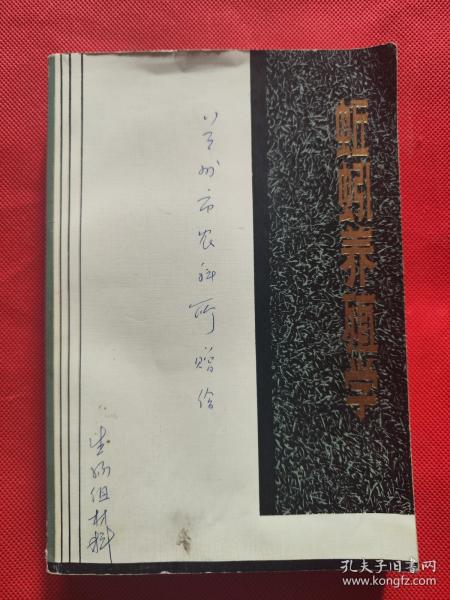 蚯蚓养殖学
兰州市农科所赠给
生物组材料
孔夫子旧书网